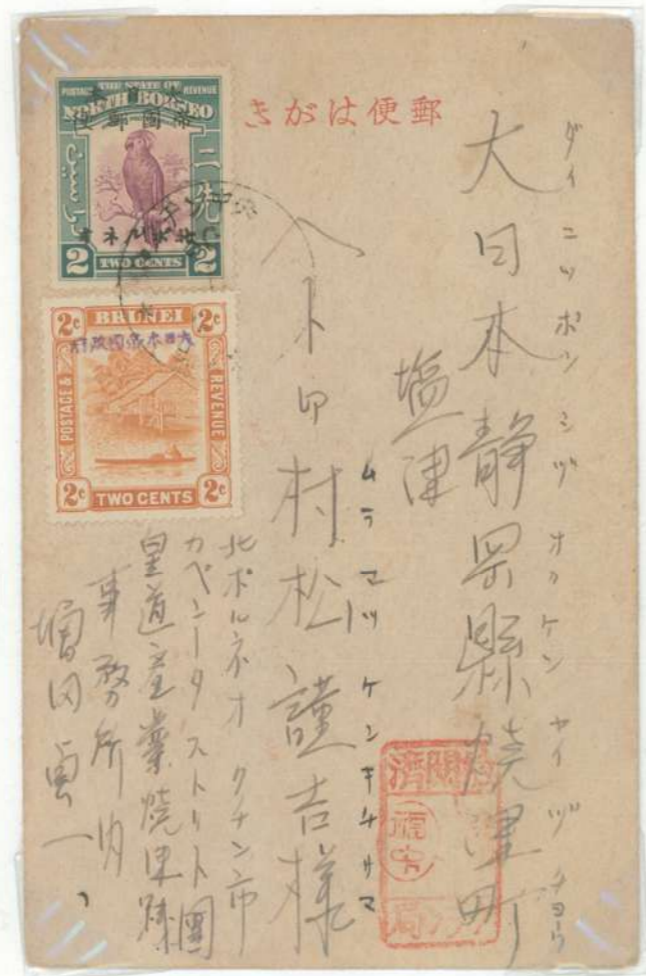 郵便はがき
THE STATE OF
NORTH BORNEO
POSTAGE
REVENUE
帝國郵便
二先
2 TWO CENTS 2
2c BRUNEI 2c
大日本帝國政府
POSTAGE &
REVENUE
2c TWO CENTS 2c
ダイニッポンシヅオカケンヤイヅチョウ
大日本静岡縣焼津町
塩津
ムラマツケンキチサマ
村松謹吉様
北ボルネオ クチン市
カペンータストリト團
皇道産業焼津踐團
事務所内
増田貞一
閲濟